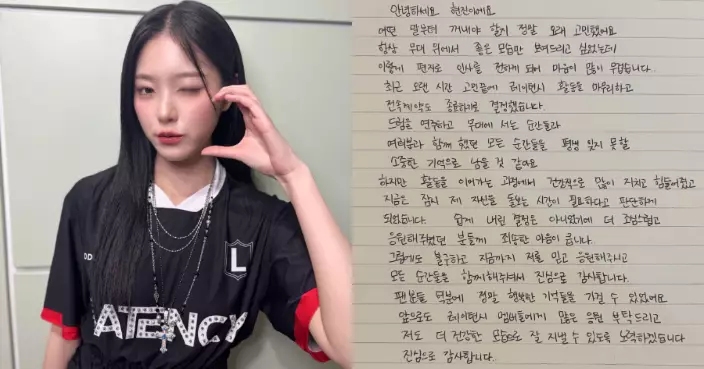 D.D
L
ATENCY
안녕하세요 현진이에요
어떤 말부터 꺼내야 할지 정말 오래 고민했어요
항상 무대 위에서 좋은 모습만 보여드리고 싶었는데
이렇게 편지로 인사를 전하게 되어 마음이 많이 무겁습니다.
최근 오랜 시간 고민끝에 레이턴시 활동을 마무리하고
전속계약도 종료하기로 결정했습니다.
드럼을 연주하고 무대에 서는 순간들과
여러분과 함께 했던 모든 순간들을 평생 잊지 못할
소중한 기억으로 남을 것 같아요
하지만 활동을 이어가는 과정에서 건강적으로 많이 지치고 힘들어졌고
지금은 잠시 제 자신을 돌보는 시간이 필요하다고 판단하게
되었습니다. 쉽게 내린 결정은 아니었기에 더 조심스럽고
응원해주셨던 분들께 죄송한 마음이 큽니다.
그럼에도 불구하고 지금까지 저를 믿고 응원해주시고
모든 순간들을 함께해주셔서 진심으로 감사합니다.
팬분들 덕분에 정말 행복한 기억들을 가질 수 있었어요
앞으로도 레이턴시 멤버들에게 많은 응원 부탁드리고
저도 더 건강한 모습으로 잘 지낼 수 있도록 노력하겠습니다
진심으로 감사합니다.